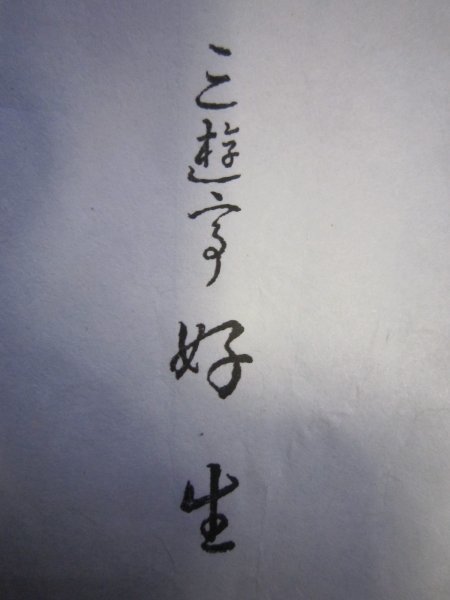 三遊亭好生